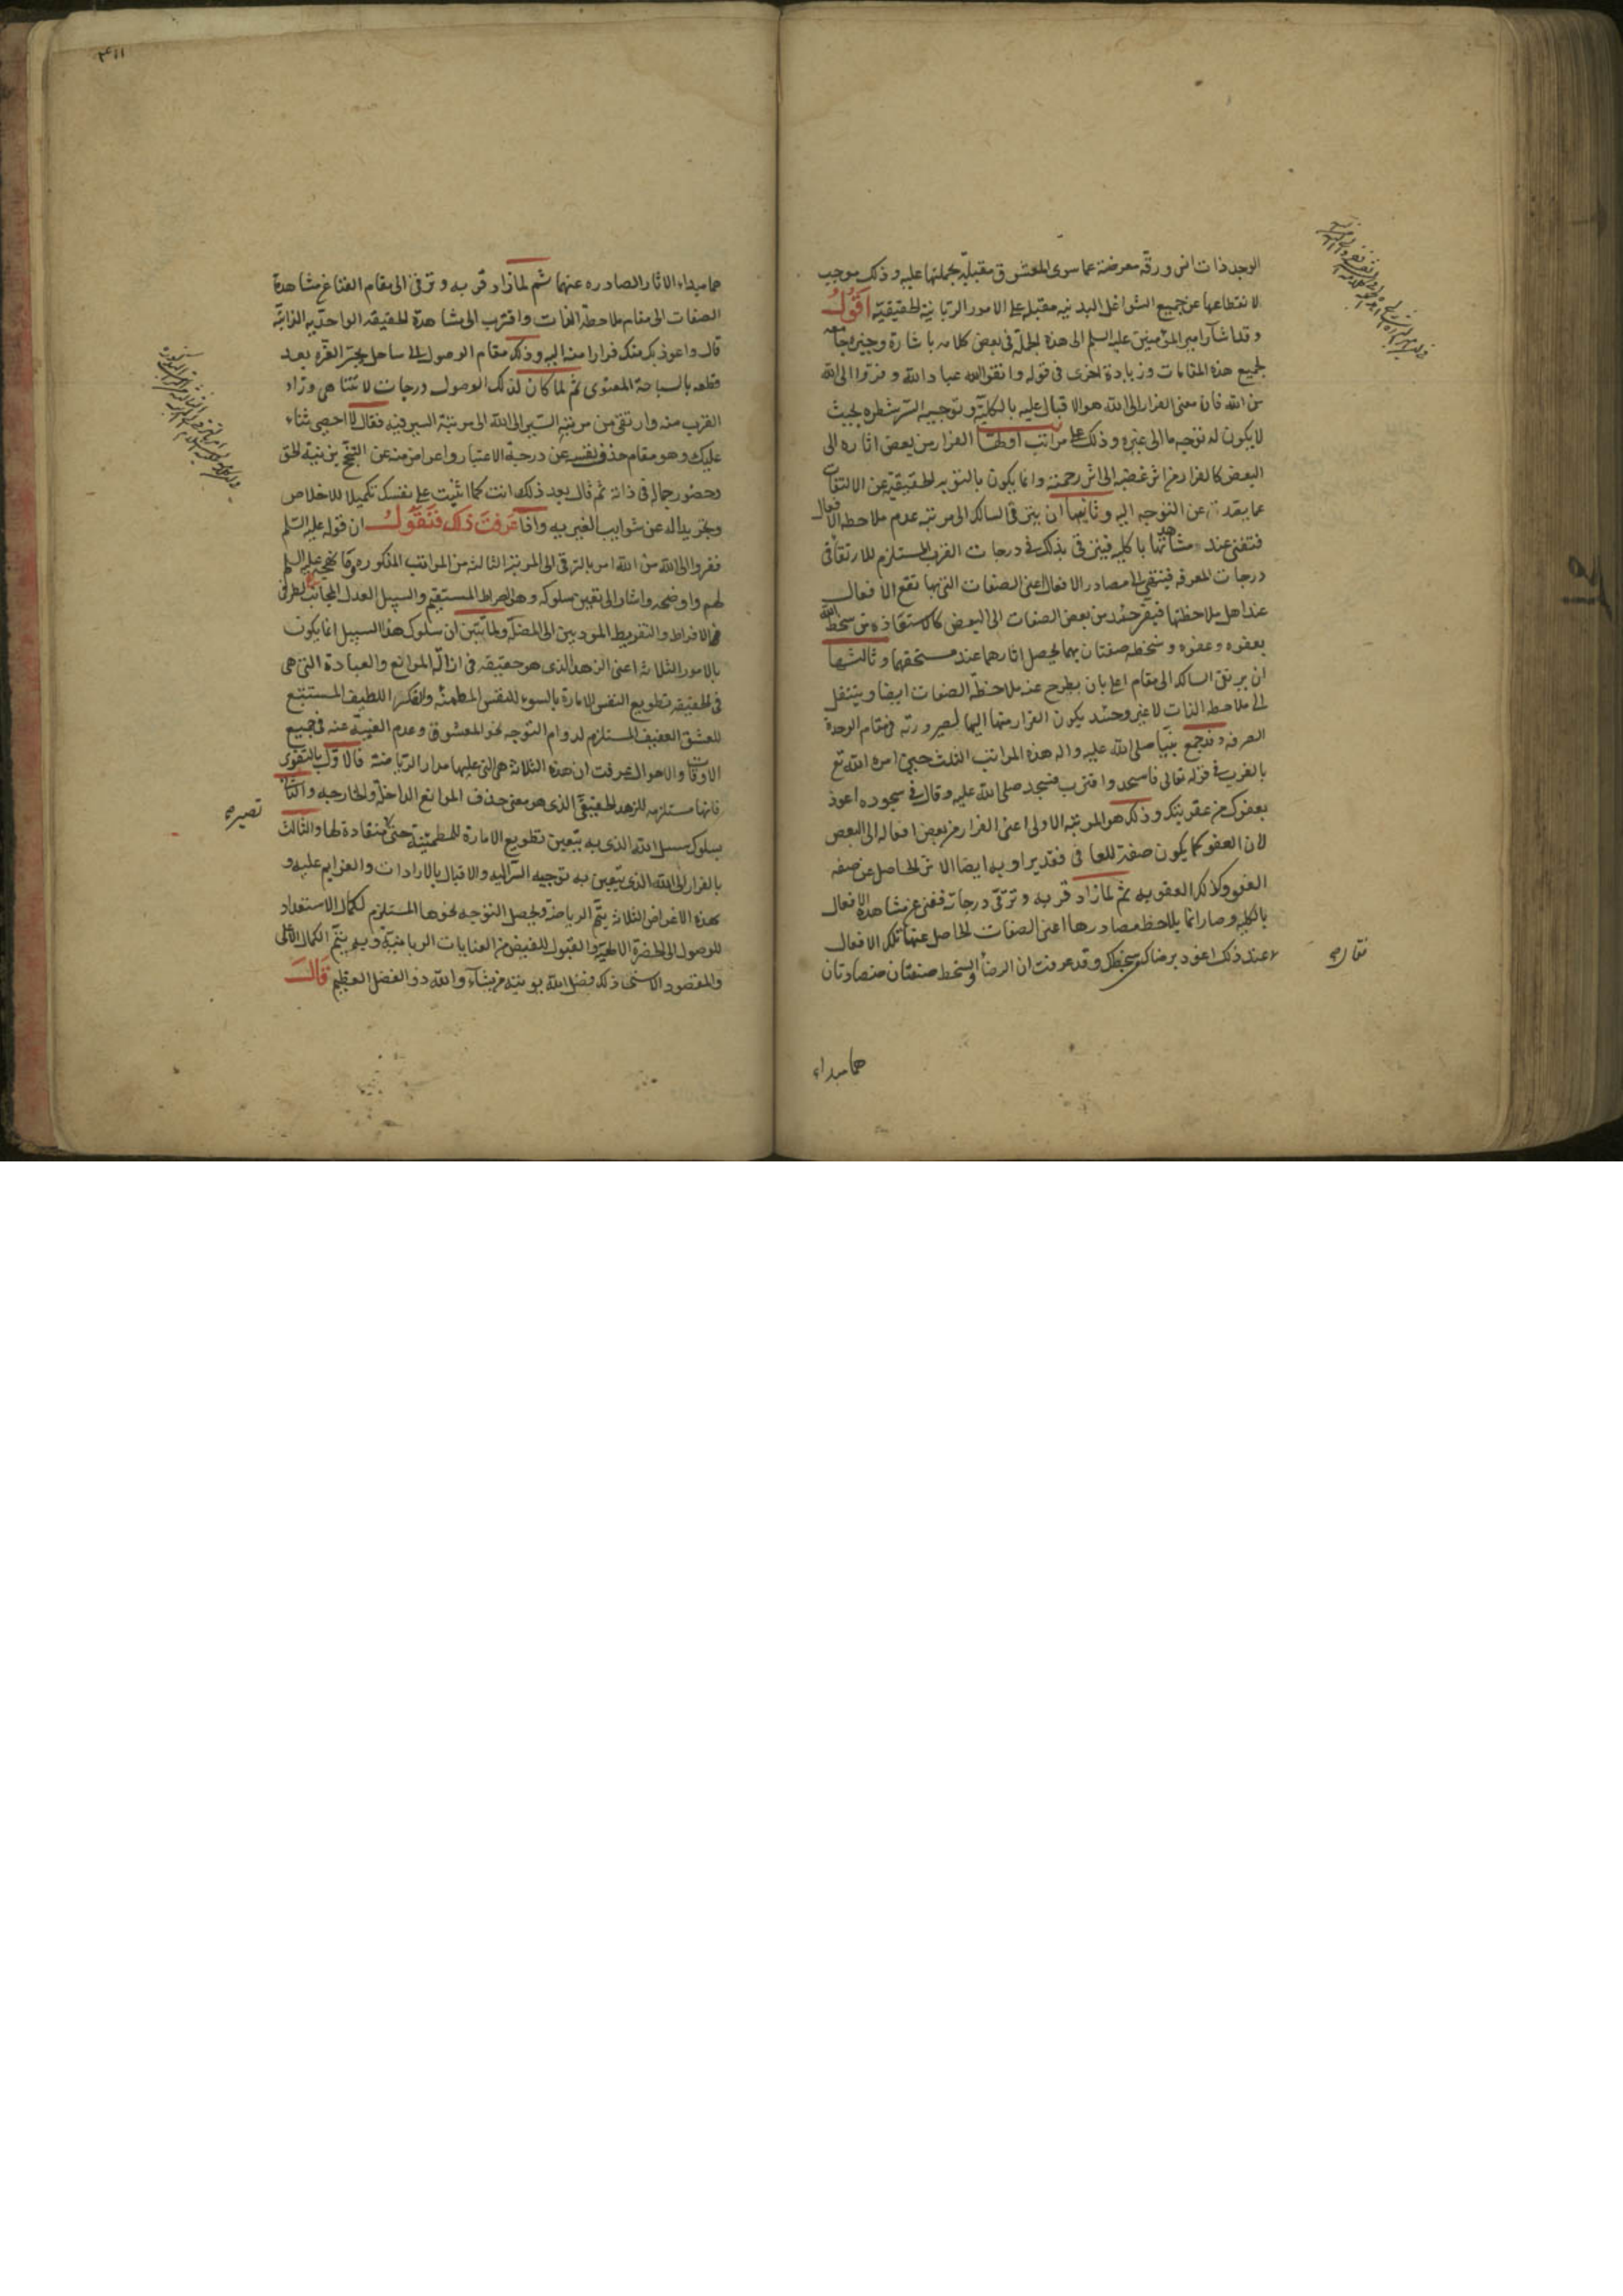 الوجد ذات انس ورقة معرضة عما سوى المعشوق مقبلة بجملتها عليه وذلك موجب
لانقطاعها عن جميع الشواغل البدنيه مقبله على الامور الربانية الحقيقية اقول
وقد اشار امير المؤمنين عليه السلم الى هذه الجملة في بعض كلامه باشارة وجيزه جامعه
لجميع هذه المقامات وزيادة اخرى في قوله واتقوا الله عباد الله وفروا الى الله
من الله فان معنى الفرار الى الله هو الاقبال عليه بالكلية وتوجيه السر شطره بحيث
لا يكون له توجه ما الى غيره وذلك على مراتب اولها الفرار من بعض اثاره الى
البعض كالفرار من اثر غضبه الى اثر رحمته وانما يكون بالتوبه الحقيقيه عن الالتفات
عما يقد عن التوجه اليه وثانيها ان يترقى السالك الى مرتبه عدم ملاحظه الافعال
فتفنى عند مشاهدتها بالكليه فيترقى بذلك في درجات القرب المستلزم للارتقا في
درجات المعرفه فينتهي الى مصادر الافعال اعنى الصفات التي بها تقع الافعال
عند اهل ملاحظتها فيفر حينئد من بعض الصفات الى البعض كالاستعاذه من سخط الله
بعفوه وعفوه وسخطه صفتان بهما يحصل اثارهما عند مستحقهما وثالثها
ان يرتقى السالك الى مقام اعلى بان يطرح عنه ملاحظة الصفات ايضا وينتقل
الى ملاحظه الذات لا غير وحينئد يكون الفرار منها اليها لصيرورته في مقام الوحدة
الصرفه وقد جمع نبينا صلى الله عليه واله هذه المراتب الثلث حين امره الله تع
بالقرب في قوله تعالى فاسجد واقترب فسجد صلى الله عليه وقال في سجوده اعوذ
بعفوك من عقوبتك وذلك هو المرتبه الاولى اعنى الفرار من بعض افعاله الى البعض
لان العفو كما يكون صفة للعافى فقد يراد به ايضا الاثر الحاصل عن صفه
العفو وكذلك العقوبه ثم لما زاد قربه وترقى درجاته ففنى عن مشاهده الافعال
بالكليه وصار انما يلاحظ مصادرها اعنى الصفات الحاصل عنها تلك الافعال
عند ذلك اعوذ برضاك من سخطك وقد عرفت ان الرضا والسخط صفتان متضادتان
هما مبداء
هما مبداء الاثار الصادره عنهما ثم لما زاد قربه وترقى الى مقام الفنا عن مشاهدة
الصفات الى مقام ملاحظة الذات واقترب الى مشاهدة الحقيقه الواحديه الذاتيه
قال واعوذ بك منك فرارا منه اليه وذلك مقام الوصول الى ساحل بحر العزه بعد
قطعه بالسباحة المعنوى ثم لما كان لذلك الوصول درجات لا تتناهى وزاد
القرب منه وارتقى من مرتبه السير الى الله الى مرتبة السير فيه فقال لا احصى ثناء
عليك وهو مقام حذف نفسه عن درجة الاعتبار واعراض منه عن التبجح بزينة الحق
وحضور جماله في ذاته ثم قال بعد ذلك انت كما اثنيت على نفسك تكميلا للاخلاص
وتجريدا له عن شوايب الغيريه واذا عرفت ذلك فنقول ان قوله عليه السلم
ففروا الى الله من الله امر بالترقى الى المرتبة الثالثه من المراتب المذكوره وقد نهجه عليه السلم
لهم واوضحه واشار الى تعيين سلوكه وهو الصراط المستقيم والسبيل العدل المجانب لطرفى
الافراط والتفريط الموديين الى المضله ولما تبين ان سلوك هذا السبيل انما يكون
بالامور الثلاثه اعنى الزهد الذى هو حقيقه في ازالة الموانع والعبادة التي هي
في الحقيقه تطويع النفس الامارة بالسوء للنفس المطمئنه والفكر اللطيف المستتبع
للعشق العفيف المستلزم لدوام التوجه نحو المعشوق وعدم الغيبة عنه في جميع
الاوقات والاحوال عرفت ان هذه الثلاثة هي التي عليها مدار الرياضة فالاول بالتقوى
فانها مستلزمه للزهد الحقيقى الذى هو معنى حذف الموانع الداخلة والخارجيه والثانى
بسلوك سبيل الله الذى به يتعين تطويع الامارة للمطمئنه حتى منقادة لها والثالث
تصير صح
بالفرار الى الله الذى يتعين به توجيه السر اليه والاقبال بالارادات والعزايم عليه و
بهذه الاغراض الثلاثه يتم الرياضه ويحصل التوجه نحوها المستلزم لكمال الاستعداد
للوصول الى الحضرة الالهية والقبول للفيض من العنايات الربانية وبه يتم الكمال الاعلى
والمقصود الاسنى ذلك فضل الله يوتيه من يشاء والله ذو الفضل العظيم قال
فقال صح